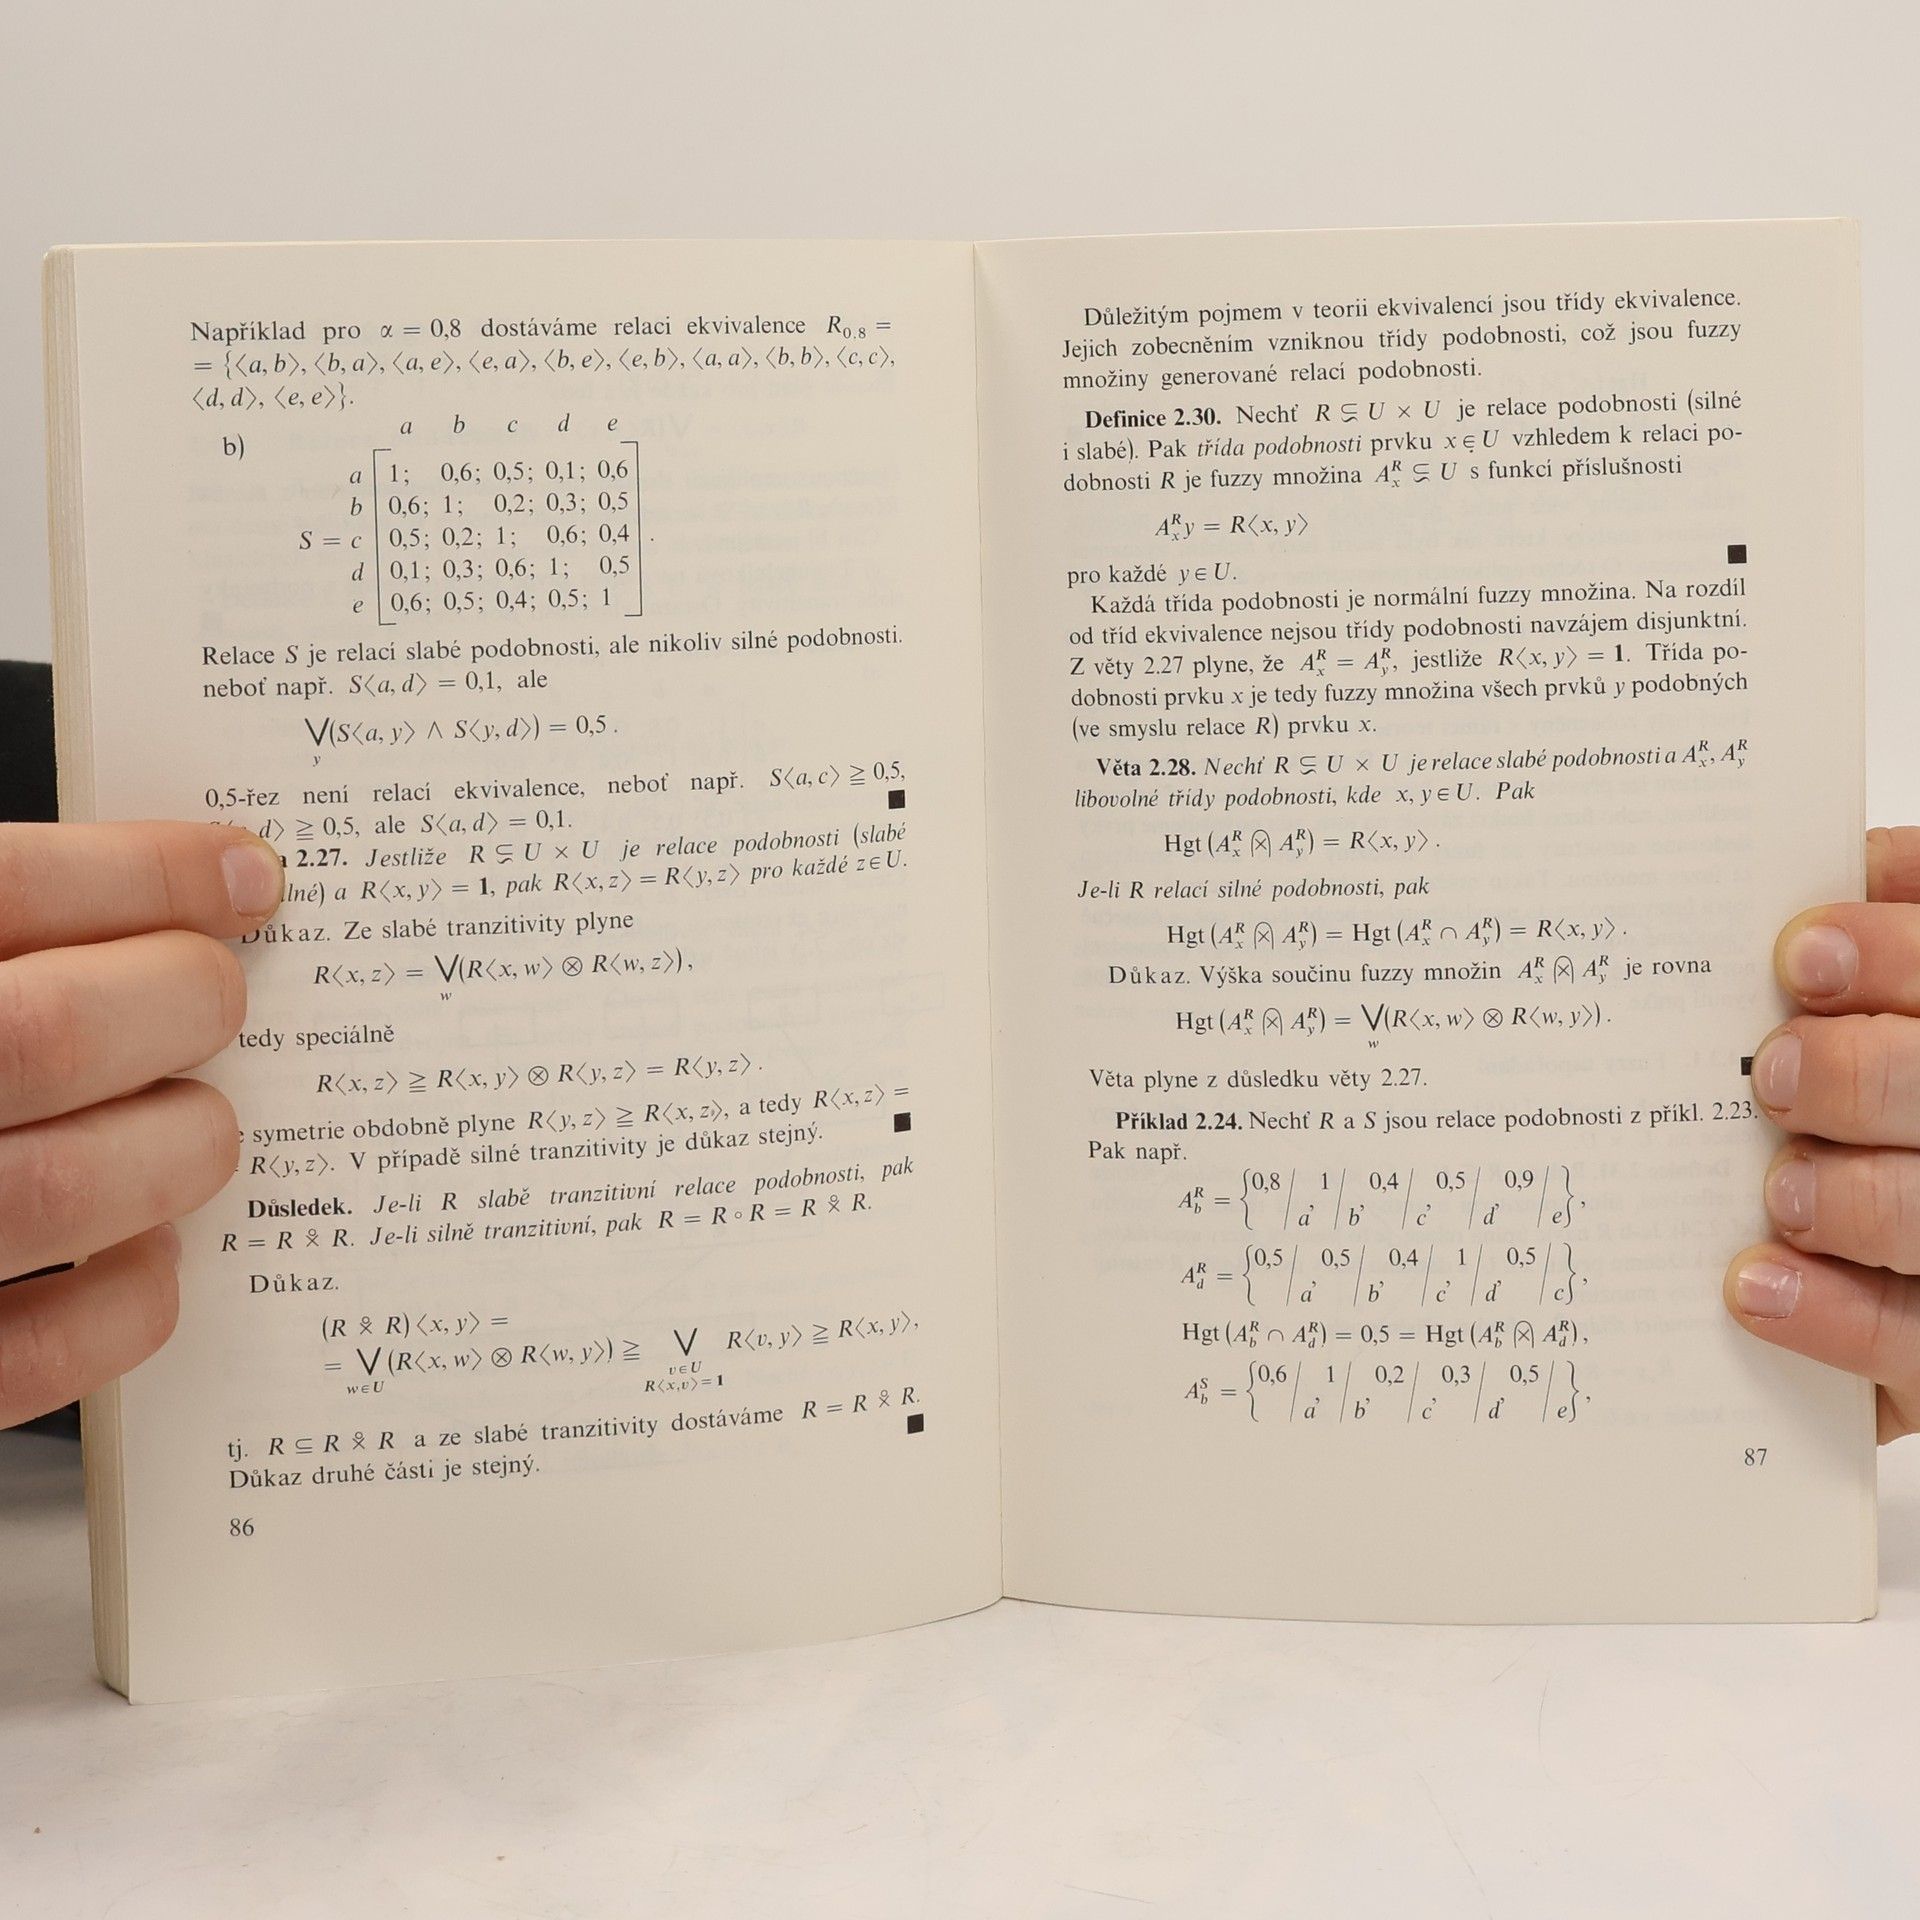 Například pro α = 0,8 dostáváme relaci ekvivalence R₀,₈ =
= {⟨a, b⟩, ⟨b, a⟩, ⟨a, e⟩, ⟨e, a⟩, ⟨b, e⟩, ⟨e, b⟩, ⟨a, a⟩, ⟨b, b⟩, ⟨c, c⟩,
⟨d, d⟩, ⟨e, e⟩}.
b)
a b c d e
a 1; 0,6; 0,5; 0,1; 0,6
b 0,6; 1; 0,2; 0,3; 0,5
S = c 0,5; 0,2; 1; 0,6; 0,4 .
d 0,1; 0,3; 0,6; 1; 0,5
e 0,6; 0,5; 0,4; 0,5; 1
Relace S je relací slabé podobnosti, ale nikoliv silné podobnosti.
neboť např. S⟨a, d⟩ = 0,1, ale
⋁(S⟨a, y⟩ ∧ S⟨y, d⟩) = 0,5 .
y
0,5-řez není relací ekvivalence, neboť např. S⟨a, c⟩ ≧ 0,5,
d⟩ ≧ 0,5, ale S⟨a, d⟩ = 0,1. ■
2.27. Jestliže R ⊊ U × U je relace podobnosti (slabé
lné) a R⟨x, y⟩ = 1, pak R⟨x, z⟩ = R⟨y, z⟩ pro každé z ∈ U.
Důkaz. Ze slabé tranzitivity plyne
R⟨x, z⟩ = ⋁(R⟨x, w⟩ ⊗ R⟨w, z⟩),
w
tedy speciálně
R⟨x, z⟩ ≧ R⟨x, y⟩ ⊗ R⟨y, z⟩ = R⟨y, z⟩ .
symetrie obdobně plyne R⟨y, z⟩ ≧ R⟨x, z⟩, a tedy R⟨x, z⟩ =
= R⟨y, z⟩. V případě silné tranzitivity je důkaz stejný. ■
Důsledek. Je-li R slabě tranzitivní relace podobnosti, pak
R = R ⨰ R. Je-li silně tranzitivní, pak R = R ∘ R = R ⨰ R.
Důkaz.
(R ⨰ R) ⟨x, y⟩ =
= ⋁ (R⟨x, w⟩ ⊗ R⟨w, y⟩) ≧ ⋁ R⟨v, y⟩ ≧ R⟨x, y⟩,
w∈U v∈U
R⟨x,v⟩=1
tj. R ⊆ R ⨰ R a ze slabé tranzitivity dostáváme R = R ⨰ R.
Důkaz druhé části je stejný. ■
86
Důležitým pojmem v teorii ekvivalencí jsou třídy ekvivalence.
Jejich zobecněním vzniknou třídy podobnosti, což jsou fuzzy
množiny generované relací podobnosti.
Definice 2.30. Nechť R ⊊ U × U je relace podobnosti (silné
i slabé). Pak třída podobnosti prvku x ∈ U vzhledem k relaci po-
dobnosti R je fuzzy množina Aₓᴿ ⊊ U s funkcí příslušnosti
Aₓᴿy = R⟨x, y⟩
pro každé y ∈ U. ■
Každá třída podobnosti je normální fuzzy množina. Na rozdíl
od tříd ekvivalence nejsou třídy podobnosti navzájem disjunktní.
Z věty 2.27 plyne, že A_x^R = A_y^R, jestliže R⟨x, y⟩ = 1. Třída po-
dobnosti prvku x je tedy fuzzy množina všech prvků y podobných
(ve smyslu relace R) prvku x.
Věta 2.28. Nechť R ⊊ U × U je relace slabé podobnosti a A_x^R, A_y^R
libovolné třídy podobnosti, kde x, y ∈ U. Pak
Hgt (A_x^R ⨂ A_y^R) = R⟨x, y⟩ .
Je-li R relací silné podobnosti, pak
Hgt (A_x^R ⨂ A_y^R) = Hgt (A_x^R ∩ A_y^R) = R⟨x, y⟩ .
Důkaz. Výška součinu fuzzy množin A_x^R ⨂ A_y^R je rovna
Hgt (A_x^R ⨂ A_y^R) = ⋁(R⟨x, w⟩ ⊗ R⟨w, y⟩) .
w
Věta plyne z důsledku věty 2.27. ■
Příklad 2.24. Nechť R a S jsou relace podobnosti z příkl. 2.23.
Pak např.
A_b^R = {0,8/a, 1/b, 0,4/c, 0,5/d, 0,9/e},
A_d^R = {0,5/a, 0,5/b, 0,4/c, 1/d, 0,5/c},
Hgt (A_b^R ∩ A_d^R) = 0,5 = Hgt (A_b^R ⨂ A_d^R),
A_b^S = {0,6/a, 1/b, 0,2/c, 0,3/d, 0,5/e},
87